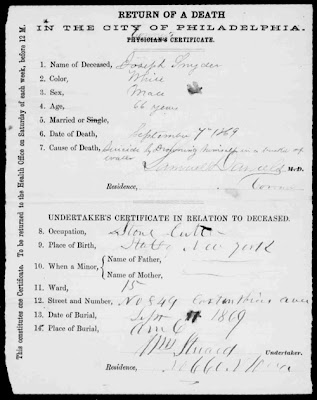 RETURN OF A DEATH
IN THE CITY OF PHILADELPHIA.
PHYSICIAN'S CERTIFICATE.
1. Name of Deceased, Joseph Snyder
2. Color, White
3. Sex, Male
4. Age, 66 years
5. Married or Single,
6. Date of Death, September 7th 1869
7. Cause of Death, Suicide by Drowning himself in a of
water
Samuel Daniels M.D.
Residence,
UNDERTAKER'S CERTIFICATE IN RELATION TO DECEASED.
8. Occupation, Stone Cutter
9. Place of Birth, State New York
10. When a Minor, Name of Father,
Name of Mother,
11. Ward, 15
12. Street and Number, No 849
13. Date of Burial, Sept 1869
14. Place of Burial,
Undertaker.
Residence,
This constitutes one Certificate. To be returned to the Health Office on Saturday of each week, before 12 M.